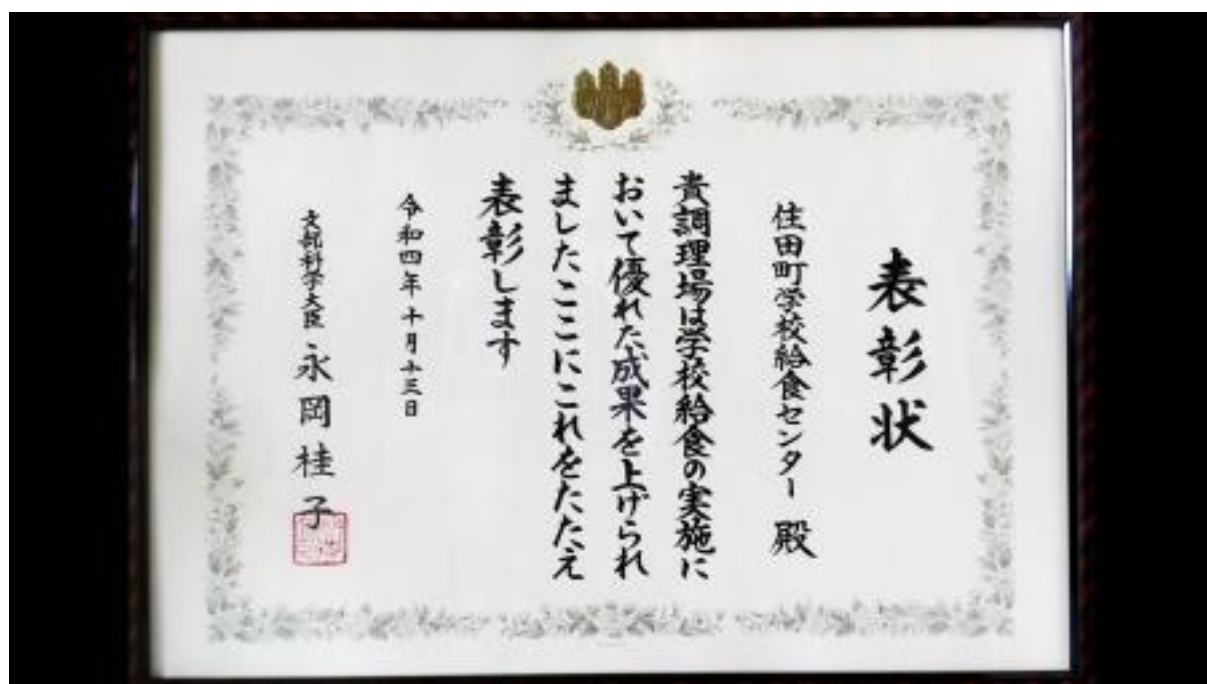 表彰状
住田町学校給食センター 殿
貴調理場は学校給食の実施に
おいて優れた成果を上げられ
ましたここにこれをたたえ
表彰します
令和四年十月十三日
文部科学大臣 永岡桂子